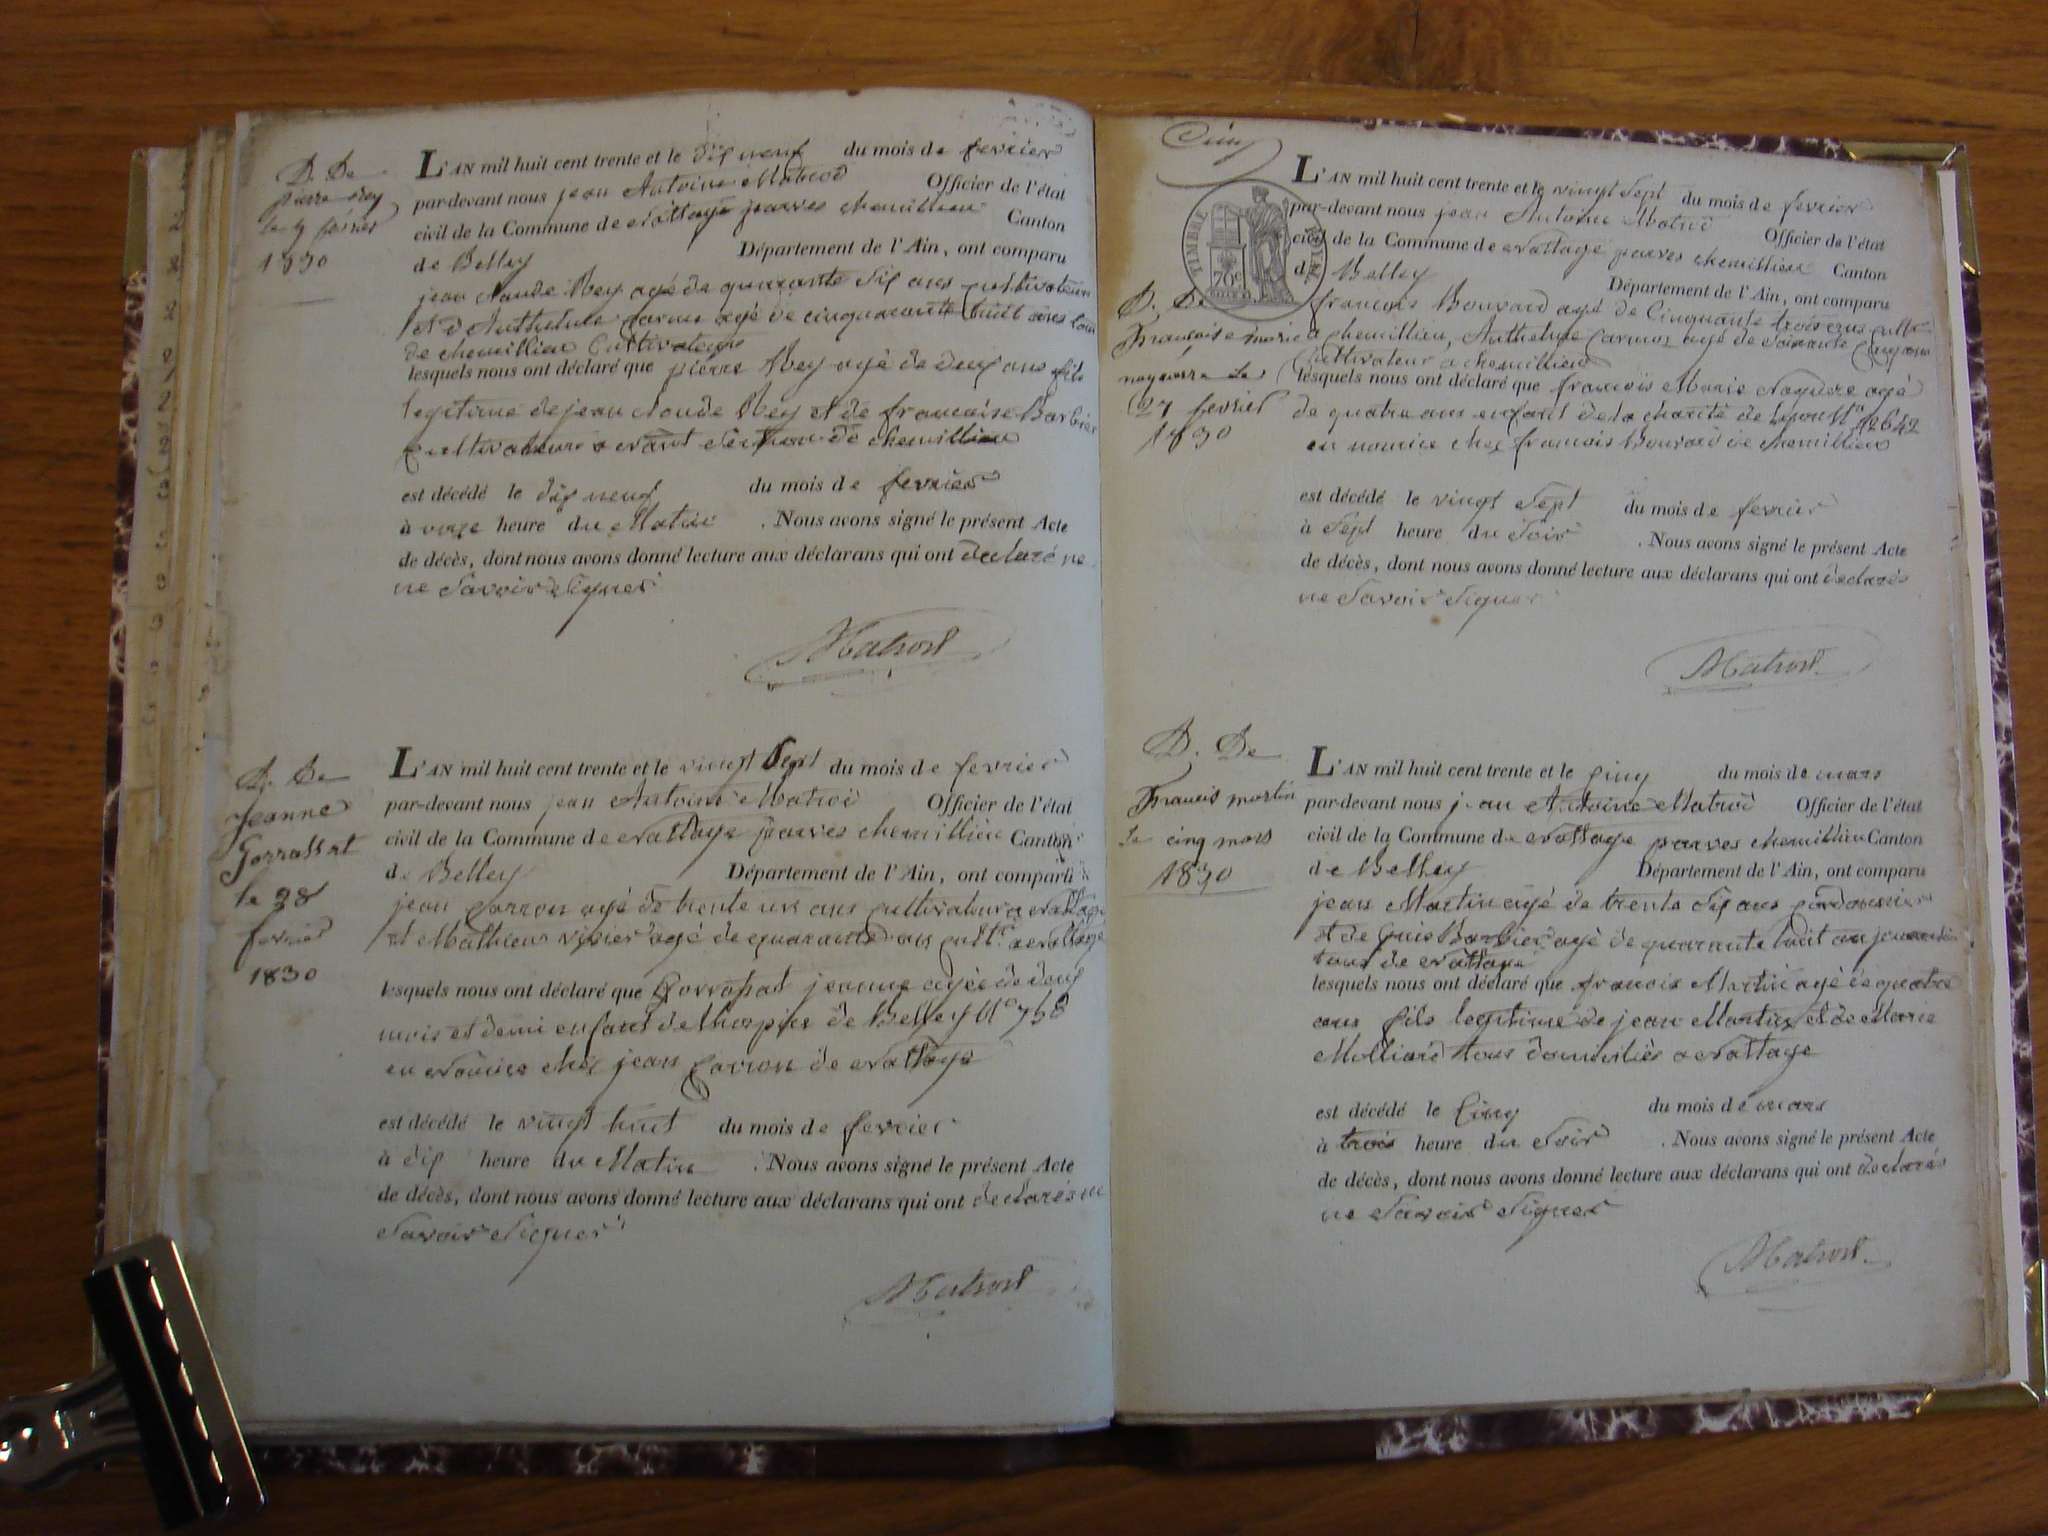 D. De
pierre Rey
le 9 février
1830
L'AN mil huit cent trente et le dix neuf du mois de fevrier
par-devant nous jean Antoine Matrod Officier de l'état
civil de la Commune de nattage parves chemillieu Canton
de Belley Département de l'Ain, ont comparu
jean claude Rey agé de quarante dix ans cultivateur
et d'Anthelme agé de cinquante huit ans tous
de chemillieu Cultivateurs
lesquels nous ont déclaré que pierre Rey agé de deux ans fils
legitime de jean claude Rey et de francoise Barbier
cultivateurs de chemillieu
est décédé le dix neuf du mois de fevrier
à onze heure du Matin . Nous avons signé le présent Acte
de décès, dont nous avons donné lecture aux déclarans qui ont declaré ne
ne Savoir Signer
Matrod
D. De
Jeanne
Gorrassat
le 28
fevrier
1830
L'AN mil huit cent trente et le vingt Sept du mois de fevrier
par-devant nous jean Antoine Matrod Officier de l'état
civil de la Commune de nattage parves chemillieu Canton
de Belley Département de l'Ain, ont comparu
jean Carron agé de trente un ans cultivateur a nattage
et Mathieu agé de quarante ans cultr. a nattage
lesquels nous ont déclaré que jeanne agée de deux
mois et demi enfant de lhospice de Belley No 758
en nourice chez jean Carron de nattage
est décédé le vingt huit du mois de fevrier
à dix heure du Matin . Nous avons signé le présent Acte
de décès, dont nous avons donné lecture aux déclarans qui ont declarés ne
Savoir Signer
Matrod
Cinq
TIMBRE ROYAL
70c
L'AN mil huit cent trente et le vingt Sept du mois de fevrier
par-devant nous jean Antoine Matrod Officier de l'état
civil de la Commune de nattage parves chemillieu Canton
de Belley Département de l'Ain, ont comparu
D. De
Francois marie
le
27 fevrier
1830
francois Bouvard agé de Cinquante trois ans cultr.
a chemillieu, Anthelme agé de Soixante
Cultivateur a chemillieu
lesquels nous ont déclaré que francois Marie agé
de quatre ans enfant de la charité de Lyon No 12642
en nourice chez francois Bouvard de chemillieu
est décédé le vingt Sept du mois de fevrier
à Sept heure du Soir . Nous avons signé le présent Acte
de décès, dont nous avons donné lecture aux déclarans qui ont declarés
ne Savoir Signer
Matrod
D. De
Francois martin
le cinq mars
1830
L'AN mil huit cent trente et le Cinq du mois de mars
par-devant nous jean Antoine Matrod Officier de l'état
civil de la Commune de nattage parves chemillieu Canton
de Belley Département de l'Ain, ont comparu
jean Martin agé de trente dix ans cordonnier
et de Barbier agé de quarante huit ans
tous de nattage
lesquels nous ont déclaré que francois Martin agé de quatre
ans fils legitime de jean Martin et de Marie
Molliard tous domiciliés a nattage
est décédé le Cinq du mois de mars
à trois heure du Soir . Nous avons signé le présent Acte
de décès, dont nous avons donné lecture aux déclarans qui ont declarés
ne Savoir Signer
Matrod